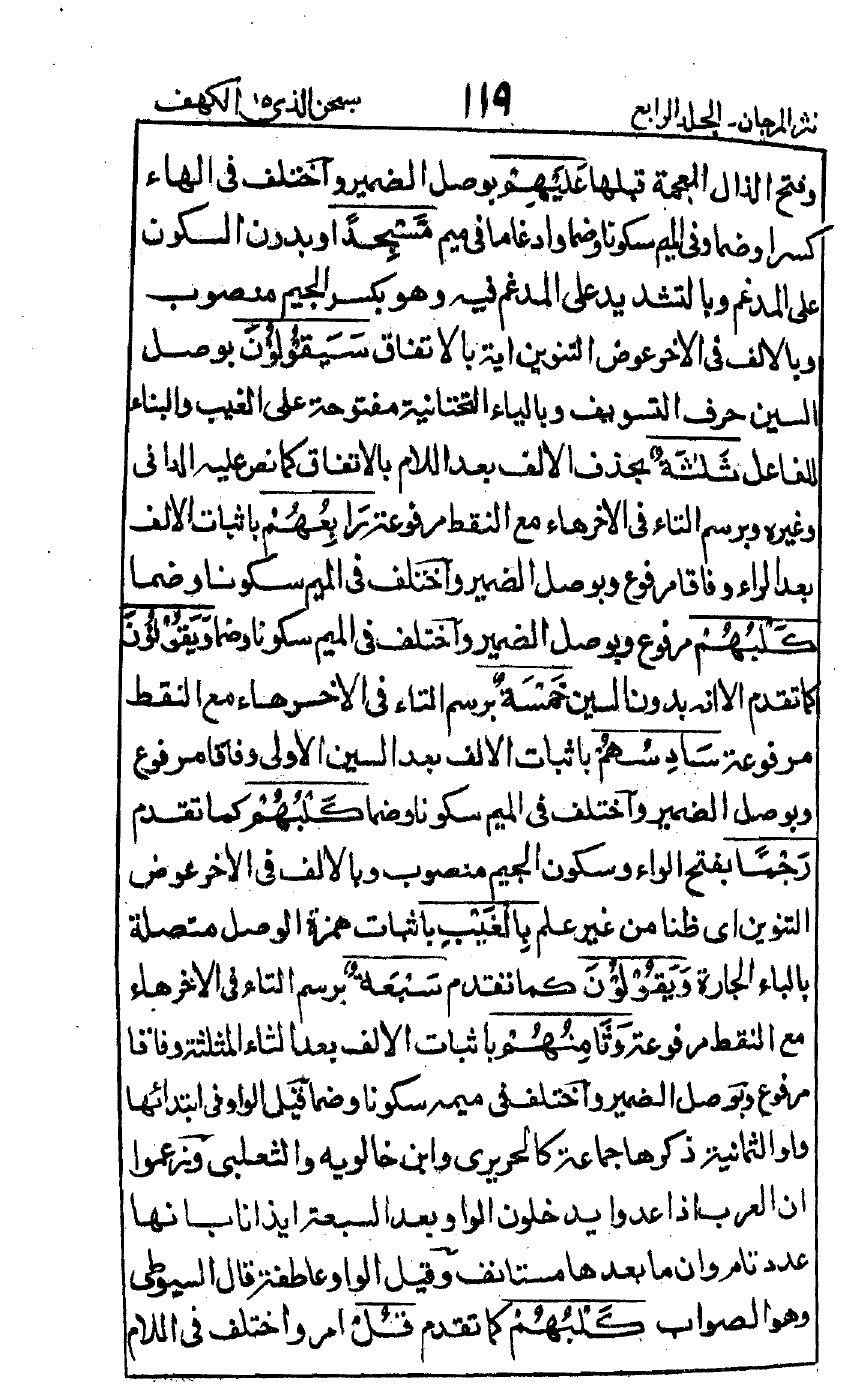 نثر المرجان ـ الجلد الرابع ١١٩ سبحن الذى ١٥ الكهف
وفتح الذال المعجمة قبلها عَلَيْهِمْ بوصل الضمير واختلف فى الهاء
كسرا وضما وفى الميم سكونا وضما وادغاما فى ميم مَّسْجِدًا وبدون السكون
على المدغم وبالتشديد على المدغم فيه وهو بكسر الجيم منصوب
وبالالف فى الاخر عوض التنوين اية بالاتفاق سَيَقُوْلُوْنَ بوصل
السين حرف التسويف وبالياء التحتانية مفتوحة على الغيب والبناء
للفاعل ثَلٰثَةٌ بحذف الالف بعد اللام بالاتفاق كما نص عليه الدانى
وغيره وبرسم التاء فى الاخر هاء مع النقط مرفوعة رَابِعُهُمْ باثبات الالف
بعد الراء وفاقا مرفوع وبوصل الضمير واختلف فى الميم سكونا وضما
كَلْبُهُمْ مرفوع وبوصل الضمير واختلف فى الميم سكونا وضما وَيَقُوْلُوْنَ
كما تقدم الا انه بدون السين خَمْسَةٌ برسم التاء فى الاخر هاء مع النقط
مرفوعة سَادِسُهُمْ باثبات الالف بعد السين الاولى وفاقا مرفوع
وبوصل الضمير واختلف فى الميم سكونا وضما كَلْبُهُمْ كما تقدم
رَجْمًا بفتح الراء وسكون الجيم منصوب وبالالف فى الاخر عوض
التنوين اى ظنا من غير علم بِالْغَيْبِ باثبات همزة الوصل متصلة
بالباء الجارة وَيَقُوْلُوْنَ كما تقدم سَبْعَةٌ برسم التاء فى الاخر هاء
مع النقط مرفوعة وَثَامِنُهُمْ باثبات الالف بعد الثاء المثلثة وفاقا
مرفوع وبوصل الضمير واختلف فى ميمه سكونا وضما قيل الواو فى ابتدائها
واو الثمانية ذكرها جماعة كالحريرى وابن خالويه والثعلبى وزعموا
ان العرب اذا عدوا يدخلون الواو بعد السبعة ايذانا بانها
عدد تام وان ما بعدها مستانف وقيل الواو عاطفة قال السيوطى
وهو الصواب كَلْبُهُمْ كما تقدم قُلْ امر واختلف فى اللام